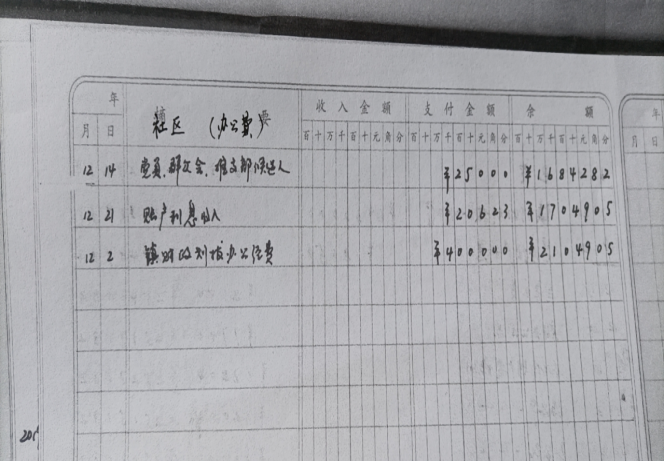 年
月 日 社区 (办公费) 要 收入金额 支付金额 余额
百十万千百十元角分 百十万千百十元角分 百十万千百十元角分
12 14 党员、群众会、推支部候选人 ¥25000 ¥1684282
12 21 账户利息收入 ¥20623 ¥1704905
12 2 镇财政划拨办公经费 ¥400000 ¥2104905
年
月 日
201